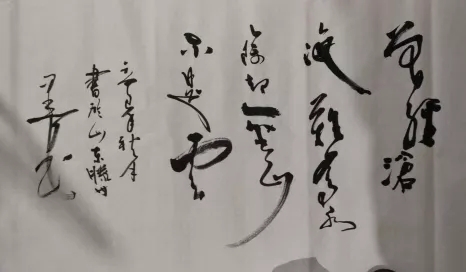 曾經滄
海難為水
除却巫山
不是雲
書於山东